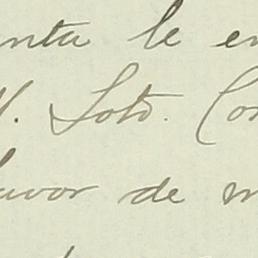 nta le en
V. Soto. Con
favor de m